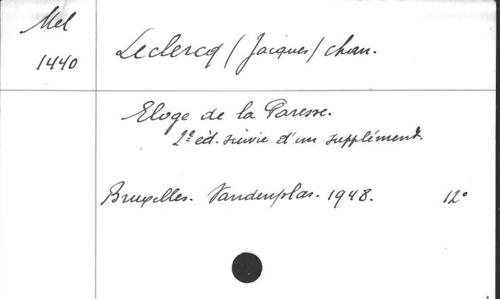 Mel
1440
Leclercq (Jacques) chan.
Eloge de la Paresse.
2e éd. suivie d'un supplément.
Bruxelles. Vandenplas. 1948. 12°